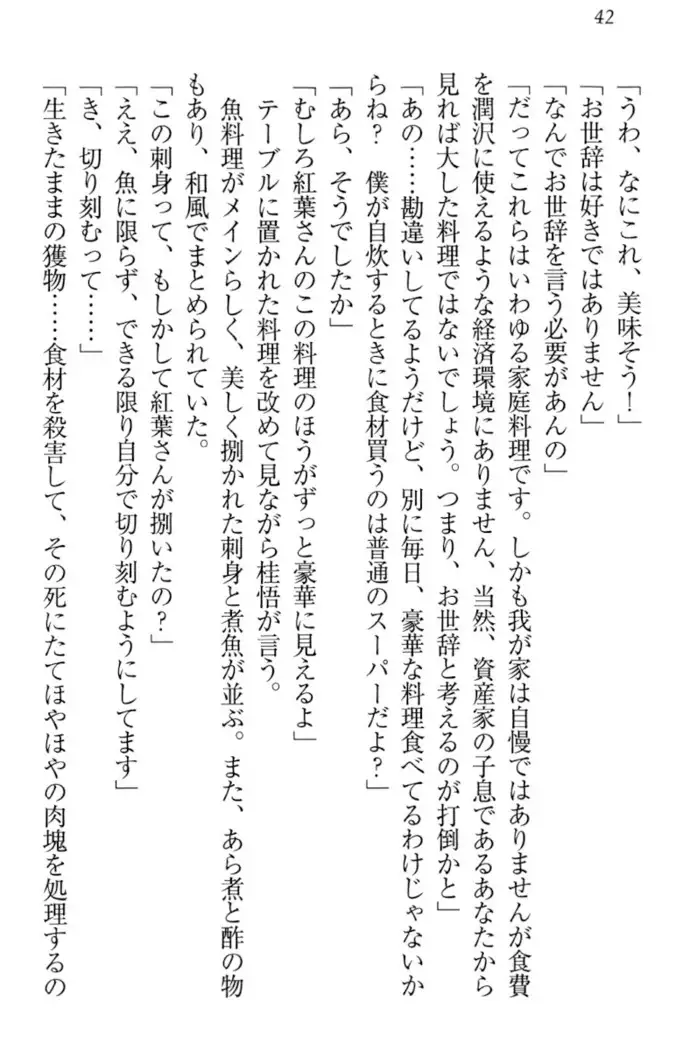 42
「うわ、なにこれ、美味そう！」
「お世辞は好きではありません」
「なんでお世辞を言う必要があんの」
「だってこれらはいわゆる家庭料理です。しかも我が家は自慢ではありませんが食費
を潤沢に使えるような経済環境にありません、当然、資産家の子息であるあなたから
見れば大した料理ではないでしょう。つまり、お世辞と考えるのが打倒かと」
「あの……勘違いしてるようだけど、別に毎日、豪華な料理食べてるわけじゃないか
らね？　僕が自炊するときに食材買うのは普通のスーパーだよ？」
「あら、そうでしたか」
「むしろ紅葉さんのこの料理のほうがずっと豪華に見えるよ」
　テーブルに置かれた料理を改めて見ながら桂悟が言う。
　魚料理がメインらしく、美しく捌かれた刺身と煮魚が並ぶ。また、あら煮と酢の物
もあり、和風でまとめられていた。
「この刺身って、もしかして紅葉さんが捌いたの？」
「ええ、魚に限らず、できる限り自分で切り刻むようにしてます」
「き、切り刻むって……」
「生きたままの獲物……食材を殺害して、その死にたてほやほやの肉塊を処理するの